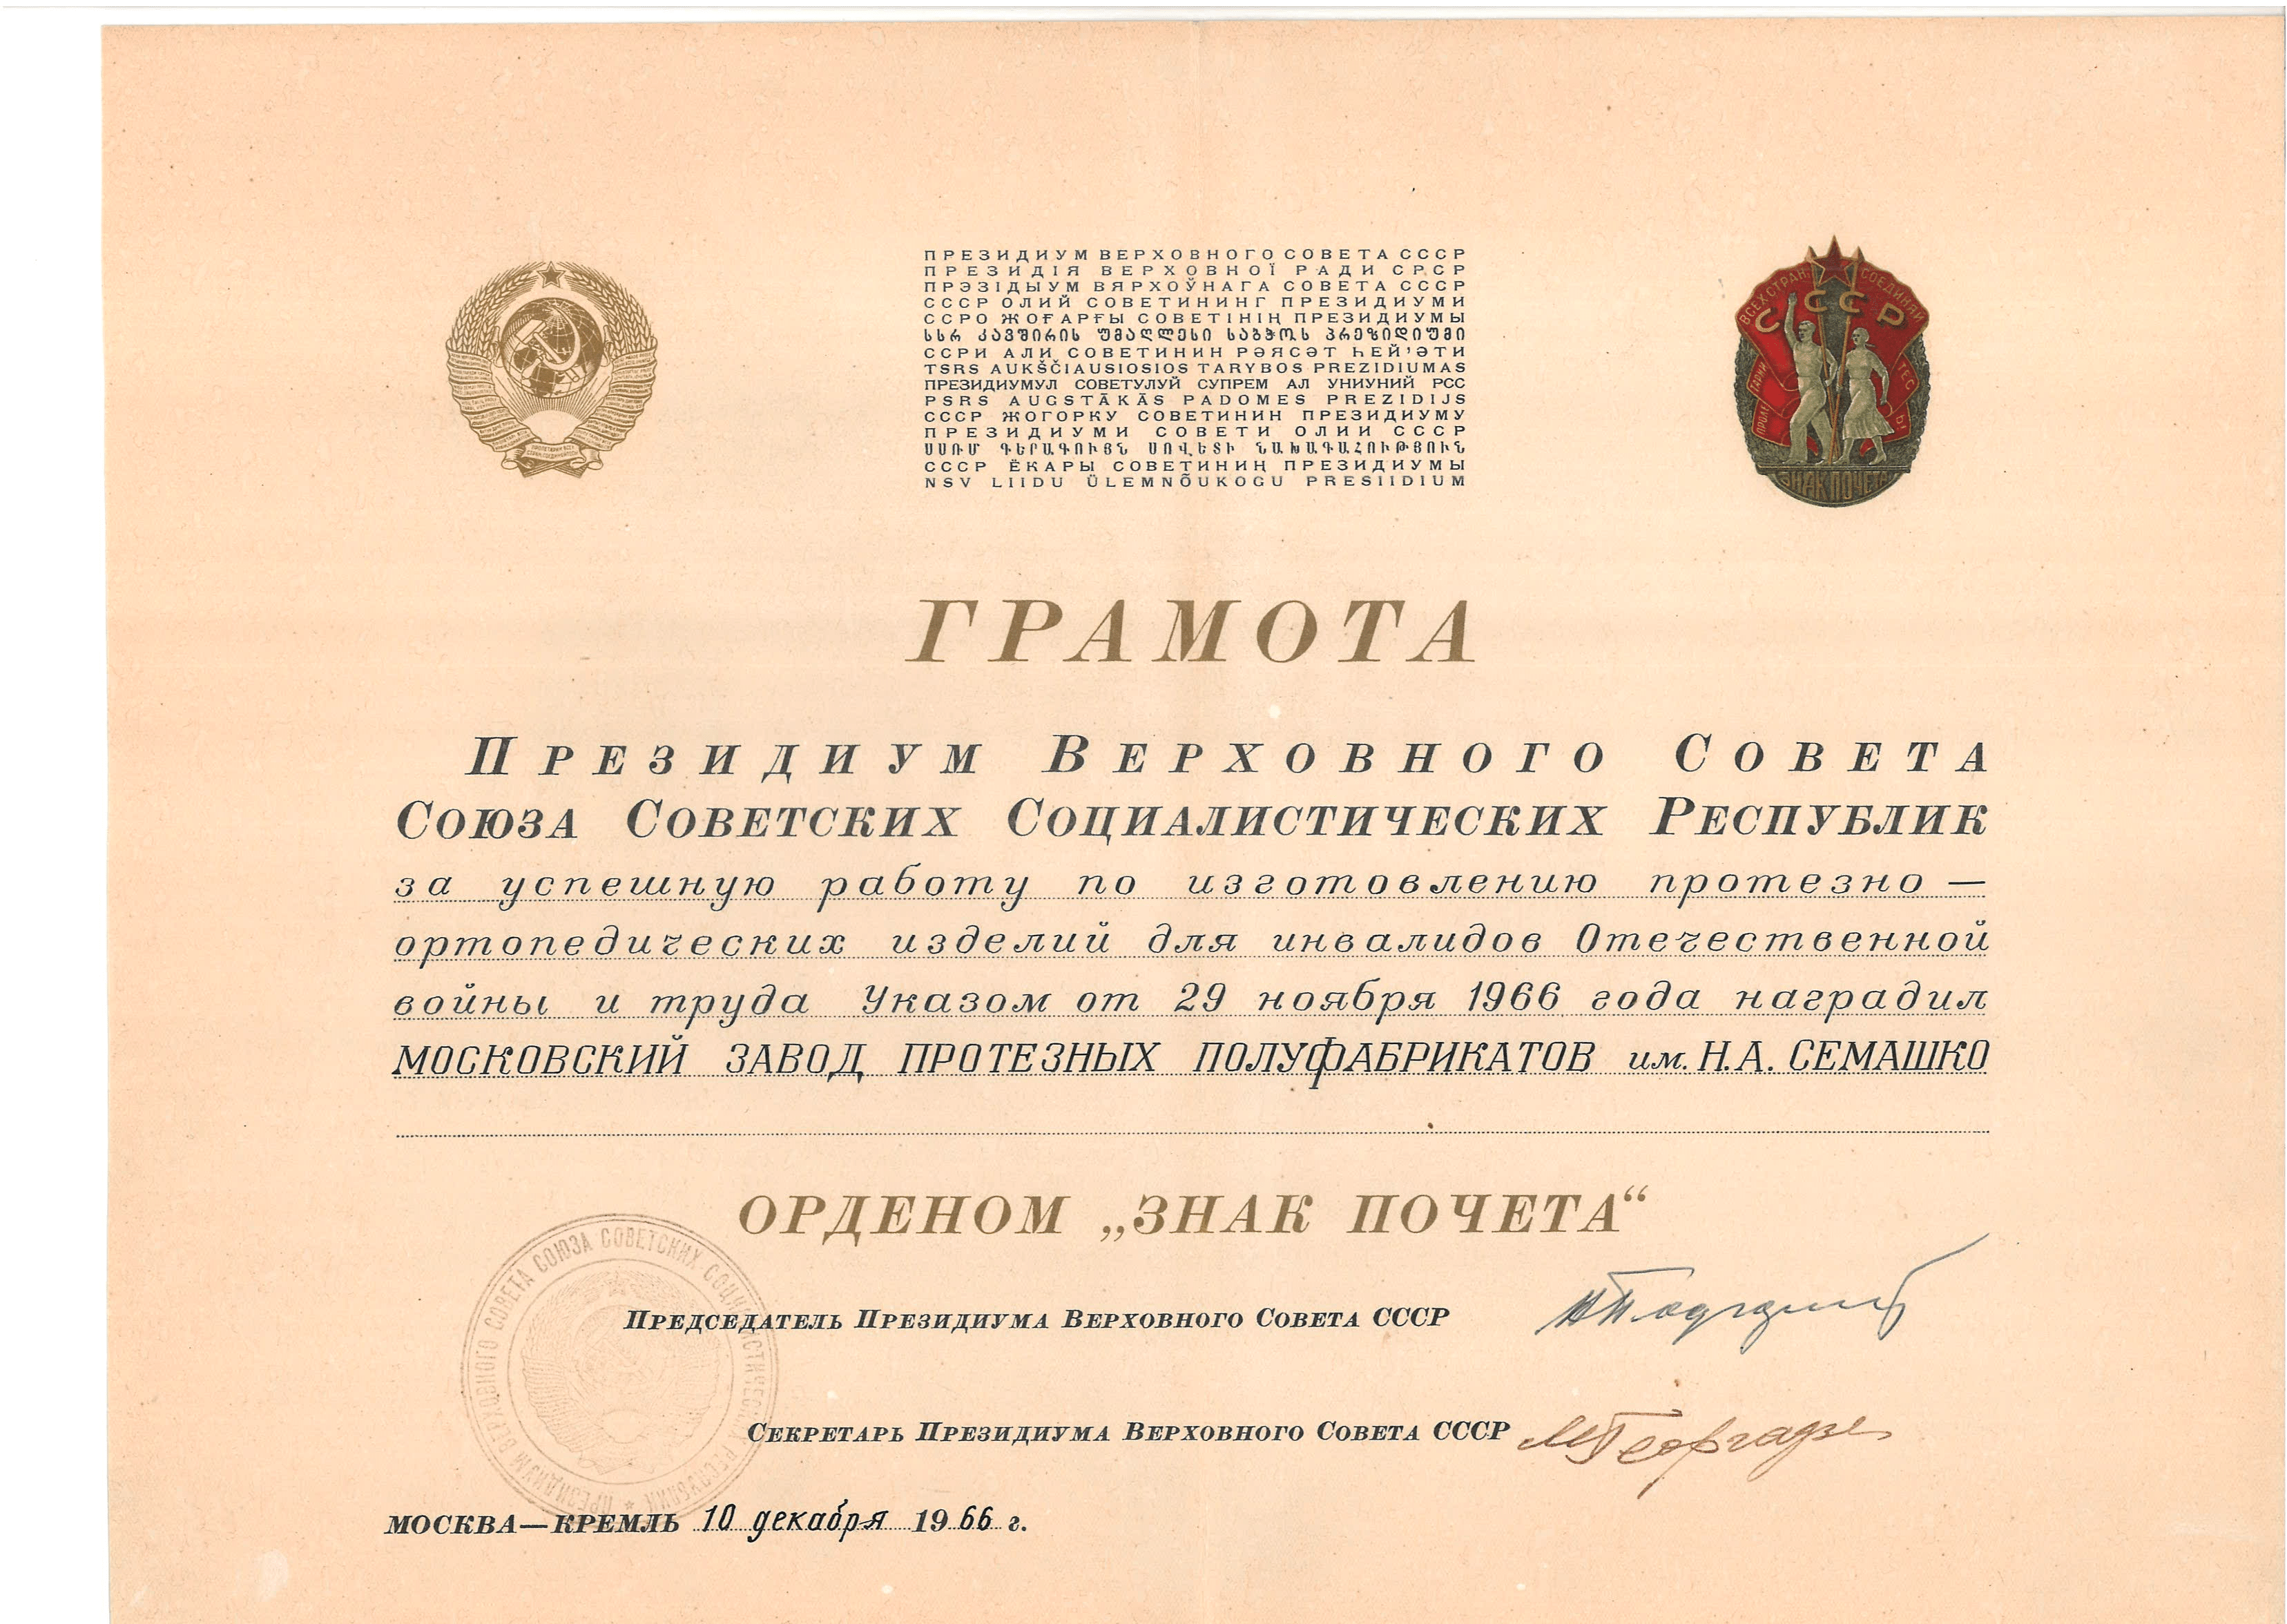 ПРЕЗИДИУМ ВЕРХОВНОГО СОВЕТА СССР
ПРЕЗИДІЯ ВЕРХОВНОЇ РАДИ СРСР
ПРЭЗІДЫУМ ВЯРХОЎНАГА СОВЕТА СССР
СССР ОЛИЙ СОВЕТИНИНГ ПРЕЗИДИУМИ
ССРО ЖОҒАРҒЫ СОВЕТІНІҢ ПРЕЗИДИУМЫ
სსრ კავშირის უმაღლესი საბჭოს პრეზიდიუმი
ССРИ АЛИ СОВЕТИНИН РӘЯСӘТ ҺЕЙ'ӘТИ
TSRS AUKŠČIAUSIOSIOS TARYBOS PREZIDIUMAS
ПРЕЗИДИУМУЛ СОВЕТУЛУЙ СУПРЕМ АЛ УНИУНИЙ РСС
PSRS AUGSTĀKĀS PADOMES PREZIDIJS
СССР ЖОГОРКУ СОВЕТИНИН ПРЕЗИДИУМУ
ПРЕЗИДИУМИ СОВЕТИ ОЛИИ СССР
ՍՍՌՄ ԳԵՐԱԳՈՒՅՆ ՍՈՎԵՏԻ ՆԱԽԱԳԱՀՈՒԹՅՈՒՆ
СССР ЁКАРЫ СОВЕТИНИҢ ПРЕЗИДИУМЫ
NSV LIIDU ÜLEMNÕUKOGU PRESIIDIUM
ВСЕХ СТРАН СОЕДИНЯЙ
СССР
ПРОЛЕТАРИИ
ТЕСЬ
ЗНАК ПОЧЕТА
ГРАМОТА
ПРЕЗИДИУМ ВЕРХОВНОГО СОВЕТА
СОЮЗА СОВЕТСКИХ СОЦИАЛИСТИЧЕСКИХ РЕСПУБЛИК
за успешную работу по изготовлению протезно —
ортопедических изделий для инвалидов Отечественной
войны и труда Указом от 29 ноября 1966 года наградил
МОСКОВСКИЙ ЗАВОД ПРОТЕЗНЫХ ПОЛУФАБРИКАТОВ им. Н.А. СЕМАШКО
ОРДЕНОМ „ЗНАК ПОЧЕТА“
ПРЕДСЕДАТЕЛЬ ПРЕЗИДИУМА ВЕРХОВНОГО СОВЕТА СССР
СЕКРЕТАРЬ ПРЕЗИДИУМА ВЕРХОВНОГО СОВЕТА СССР М Георгадзе
ПРЕЗИДИУМ ВЕРХОВНОГО СОВЕТА СОЮЗА СОВЕТСКИХ СОЦИАЛИСТИЧЕСКИХ РЕСПУБЛИК
МОСКВА—КРЕМЛЬ 10 декабря 1966 г.